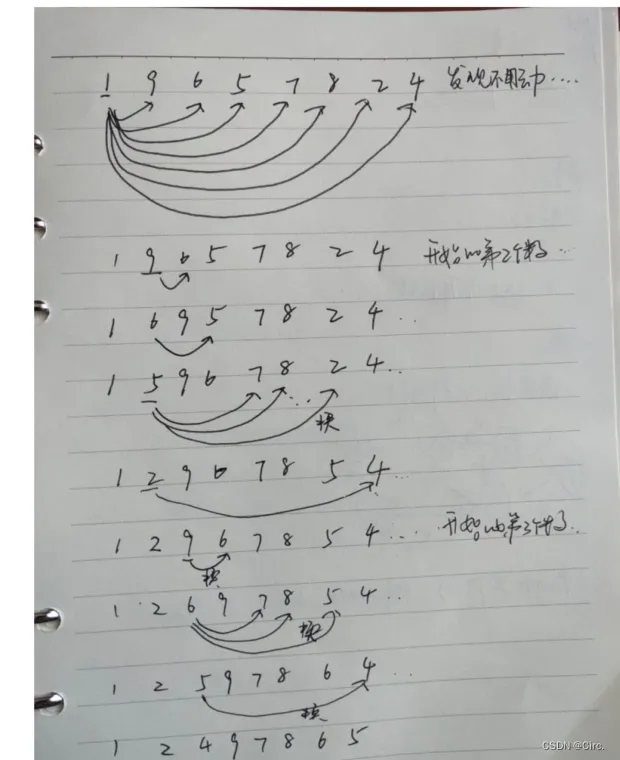 1 9 6 5 7 8 2 4 发现不用动....
1 9 6 5 7 8 2 4 开始第2个数...
1 6 9 5 7 8 2 4..
1 5 9 6 7 8 2 4..
...
换
1 2 9 6 7 8 5 4...
1 2 9 6 7 8 5 4... 开始第3个数..
换
1 2 6 9 7 8 5 4..
换
1 2 5 9 7 8 6 4..
换
1 2 4 9 7 8 6 5
CSDN @Circ.